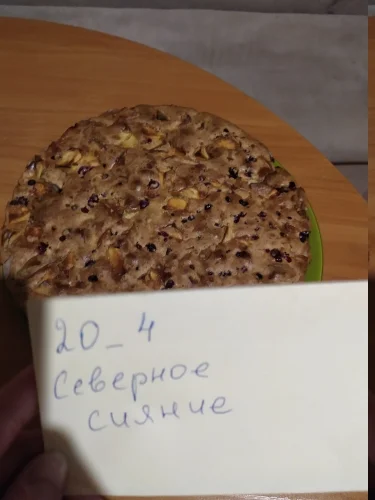 20_4
Северное
сияние